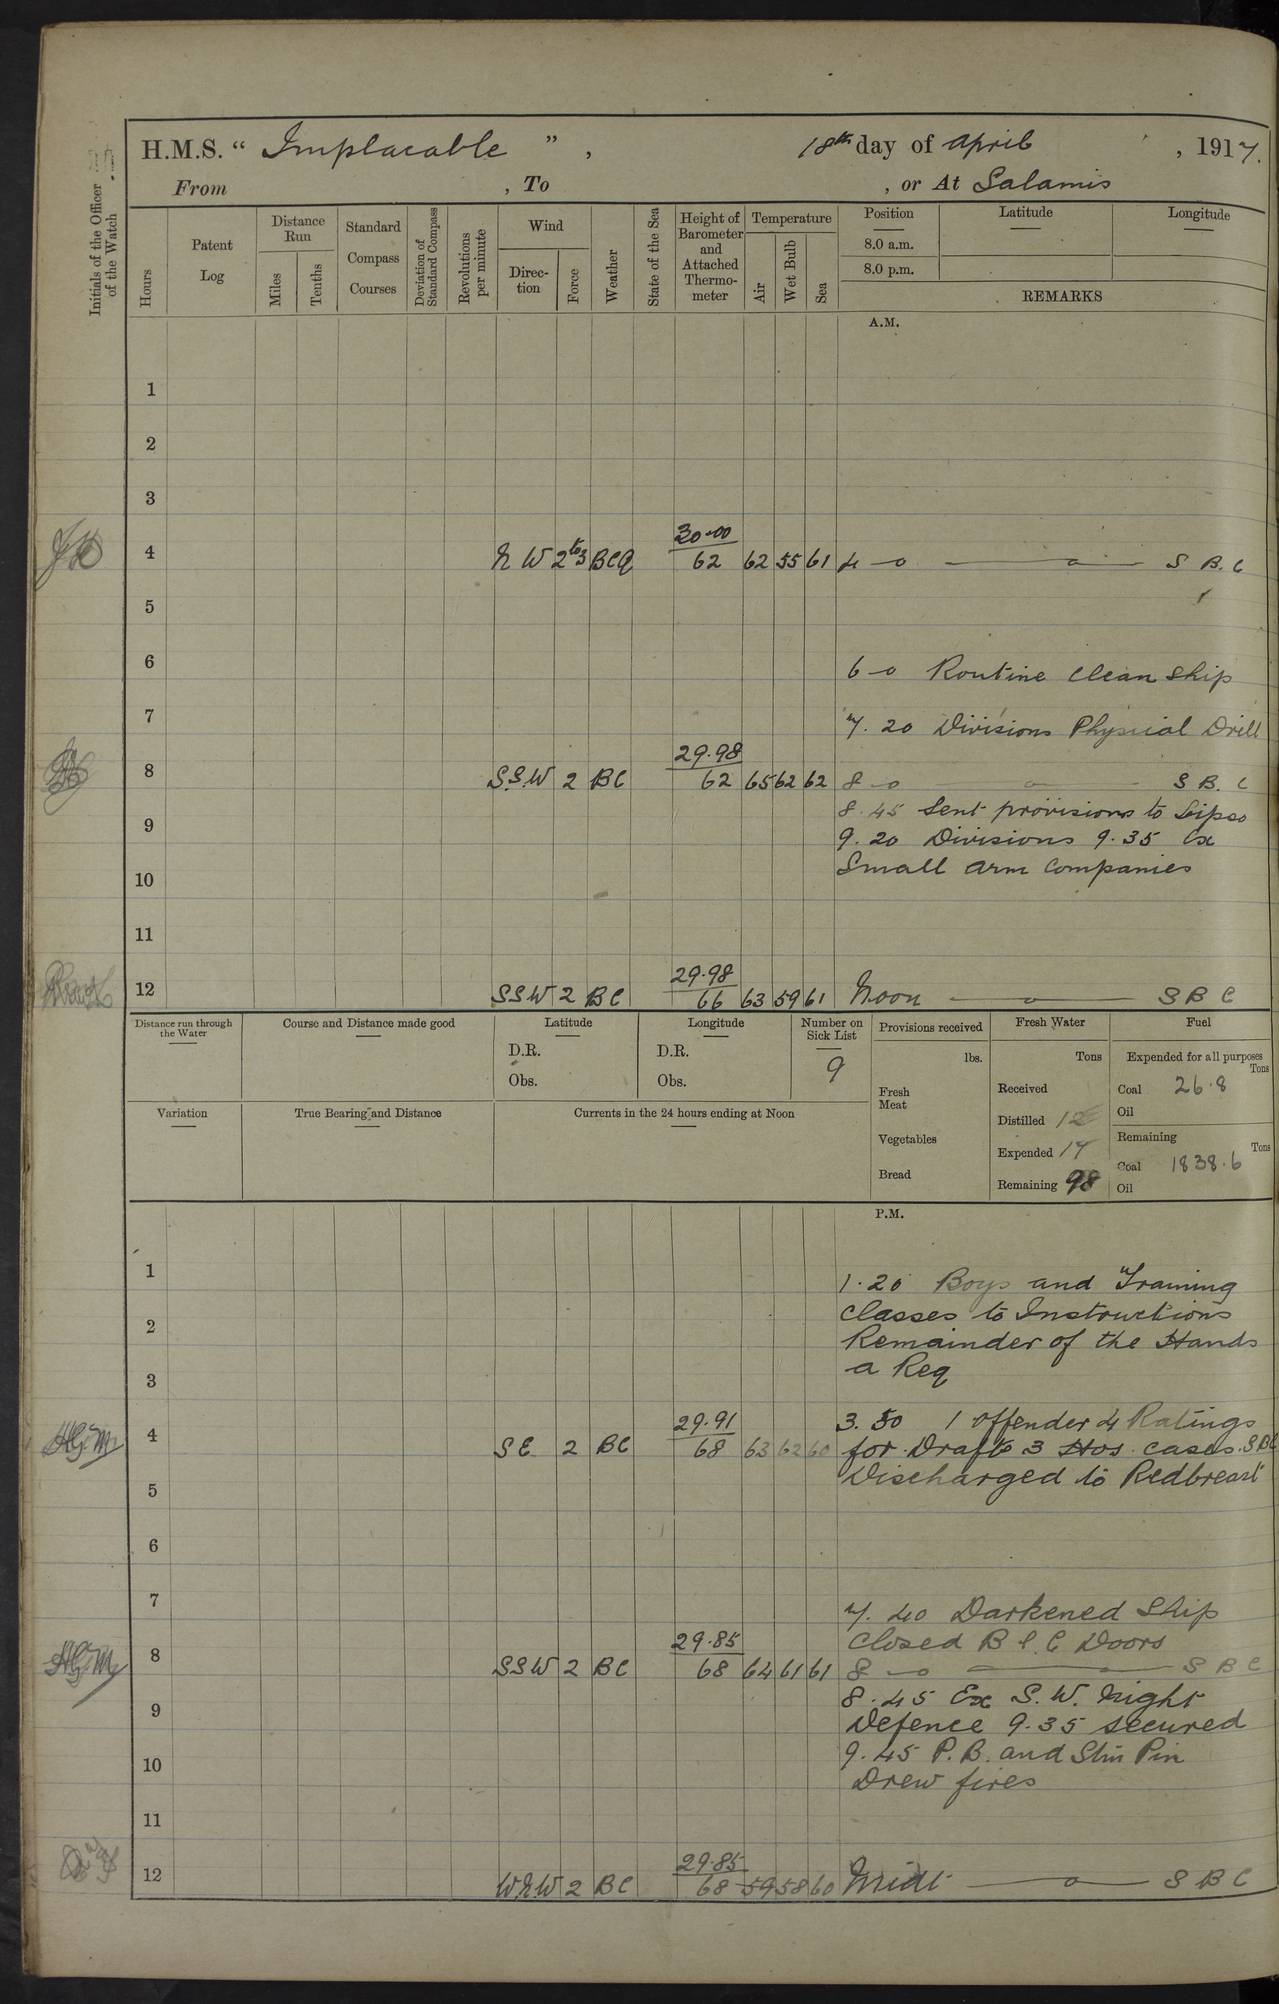 H.M.S. “ Implacable ” , 18th day of April , 1917.
From , To , or At Salamis
Initials of the Officer of the Watch
Hours
Patent Log
Distance Run
Miles
Tenths
Standard Compass Courses
Deviation of Standard Compass
Revolutions per minute
Wind
Direc-tion
Force
Weather
State of the Sea
Height of Barometer and Attached Thermo-meter
Temperature
Air
Wet Bulb
Sea
Position
8.0 a.m.
8.0 p.m.
Latitude
Longitude
REMARKS
A.M.
1
2
3
30.00
4 N W 2 to 3 BCQ 62 62 55 61 4-0 S B. C
5
6 6-0 Routine Clean Ship
7 7. 20 Divisions Physical Drill
29.98
8 S.S.W 2 BC 62 65 62 62 8-0 S B. C
8.45 Sent provisions to Lipso
9 9. 20 Divisions 9.35 Ex
10 Small arm Companies
11
29.98
12 SSW 2 BC 66 63 59 61 Noon S B C
Distance run through the Water
Course and Distance made good
Latitude
D.R.
Obs.
Longitude
D.R.
Obs.
Number on Sick List
9
Provisions received
lbs.
Fresh Meat
Vegetables
Bread
Fresh Water
Tons
Received
Distilled 12
Expended 17
Remaining 98
Fuel
Expended for all purposes
Tons
Coal 26.8
Oil
Remaining
Tons
Coal 1838.6
Oil
Variation
True Bearing and Distance
Currents in the 24 hours ending at Noon
P.M.
1 1.20 Boys and Training
2 Classes to Instructions
Remainder of the Hands
3 a Req
29.91 3. 50 1 offender 4 Ratings
4 SE 2 BC 68 63 62 60 for Draft 3 Hos. cases. SBC
5 Discharged to Redbreast
6
7 7. 40 Darkened Ship
29.85 Closed B & C Doors
8 SSW 2 BC 68 64 61 61 8-0 S B C
8.45 Ex S. W. Night
9 Defence 9.35 secured
10 9.45 P.B. and Stm Pin
Drew fires
11
29.85
12 WNW 2 BC 68 59 58 60 Midt S B C
HGM
HGM